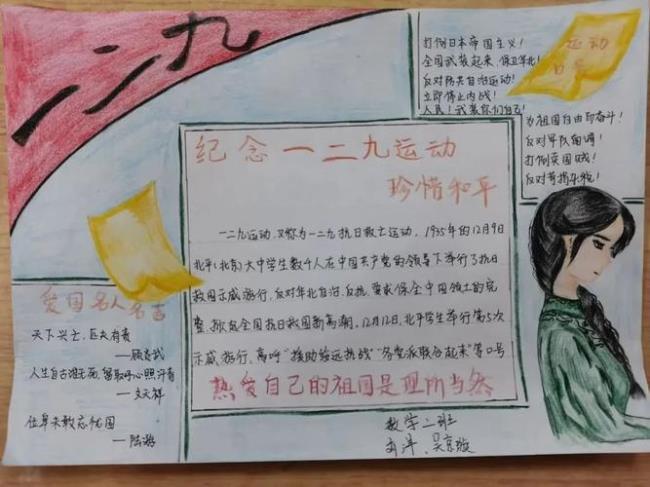 一二九
打倒日本帝国主义!
全国武装起来,保卫华北!
反对防共自治运动!
立即停止内战!
人民!武装你们自己!
运动
口号
为祖国自由而奋斗!
反对军队
打倒卖国贼!
反对苛捐杂税!
纪念一二九运动
珍惜和平
一二九运动,又称为一二九抗日救亡运动。1935年的12月9日
北平(北京)大中学生数千人在中国共产党的领导下举行了抗日
救国示威游行,反对华北自治,反抗,要求保全中国领土的完
整,掀起全国抗日救国新高潮。12月12日,北平学生举行第5次
示威游行,高呼"援助绥远抗战""各党派联合起来"等口号
热爱自己的祖国是理所当然
爱国名人名言
天下兴亡,匹夫有责
——顾炎武
人生自古谁无死,留取丹心照汗青
——文天祥
位卑未敢忘忧国
——陆游
数学二班